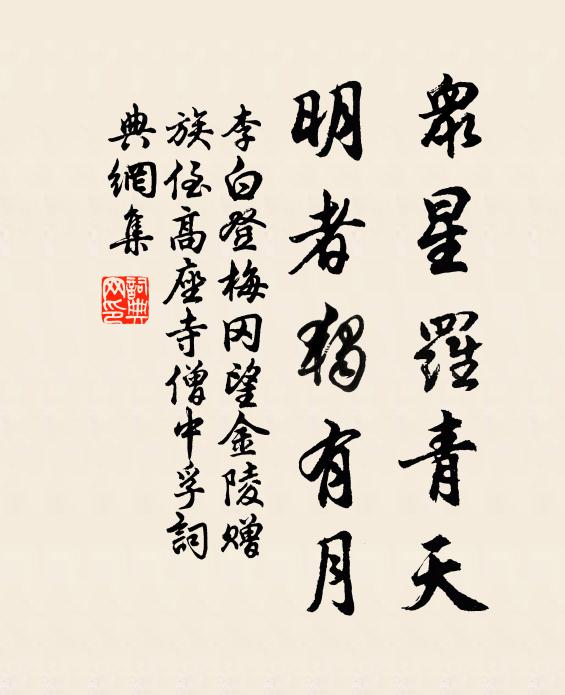 眾星羅青天
明者獨有月
李白登梅冈望金陵赠
族侄高座寺僧中孚詞
典網集
詞典网印